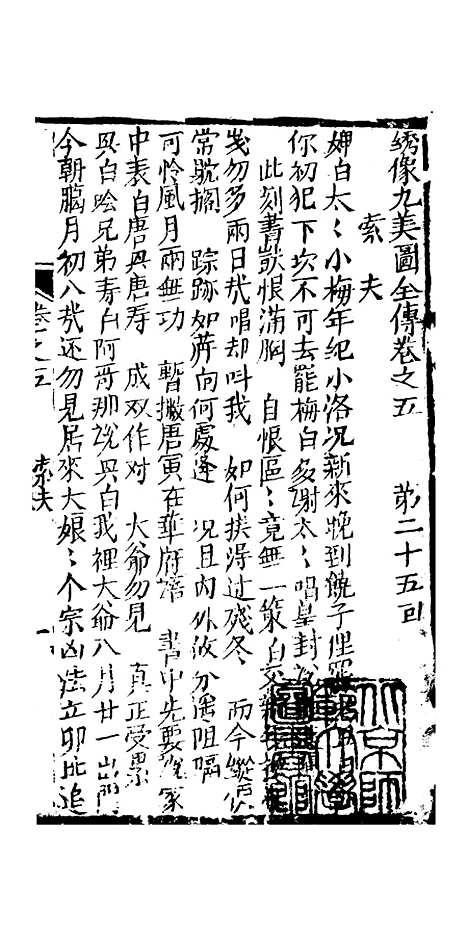 綉像九美圖全傳卷之五　第二十五回
索夫
婢白太〻小梅年紀小洛况新來晚到饒子俚罷
你初犯下次不可去罷梅白多謝太〻唱皇封
此刻書獃恨滿胸　自恨區〻竟無一策
歲勿多兩日哉唱却叫我　如何挨得过殘冬　而今縱
常耽擱　踪跡如萍向何處逢　况且內外攸分遇阻隔
可怜風月兩無功　暫撇唐寅在華府　書中先要家
中表白唐興唐壽　成双作对　大爺勿見　真正受累
興白哙兄弟壽白阿哥那說興白我裡大爺八月廿一出門
今朝臈月初八哉还勿見居來大娘〻个宗凶法立卯比追
卷之五　索夫　一
北京師範大學圖書館